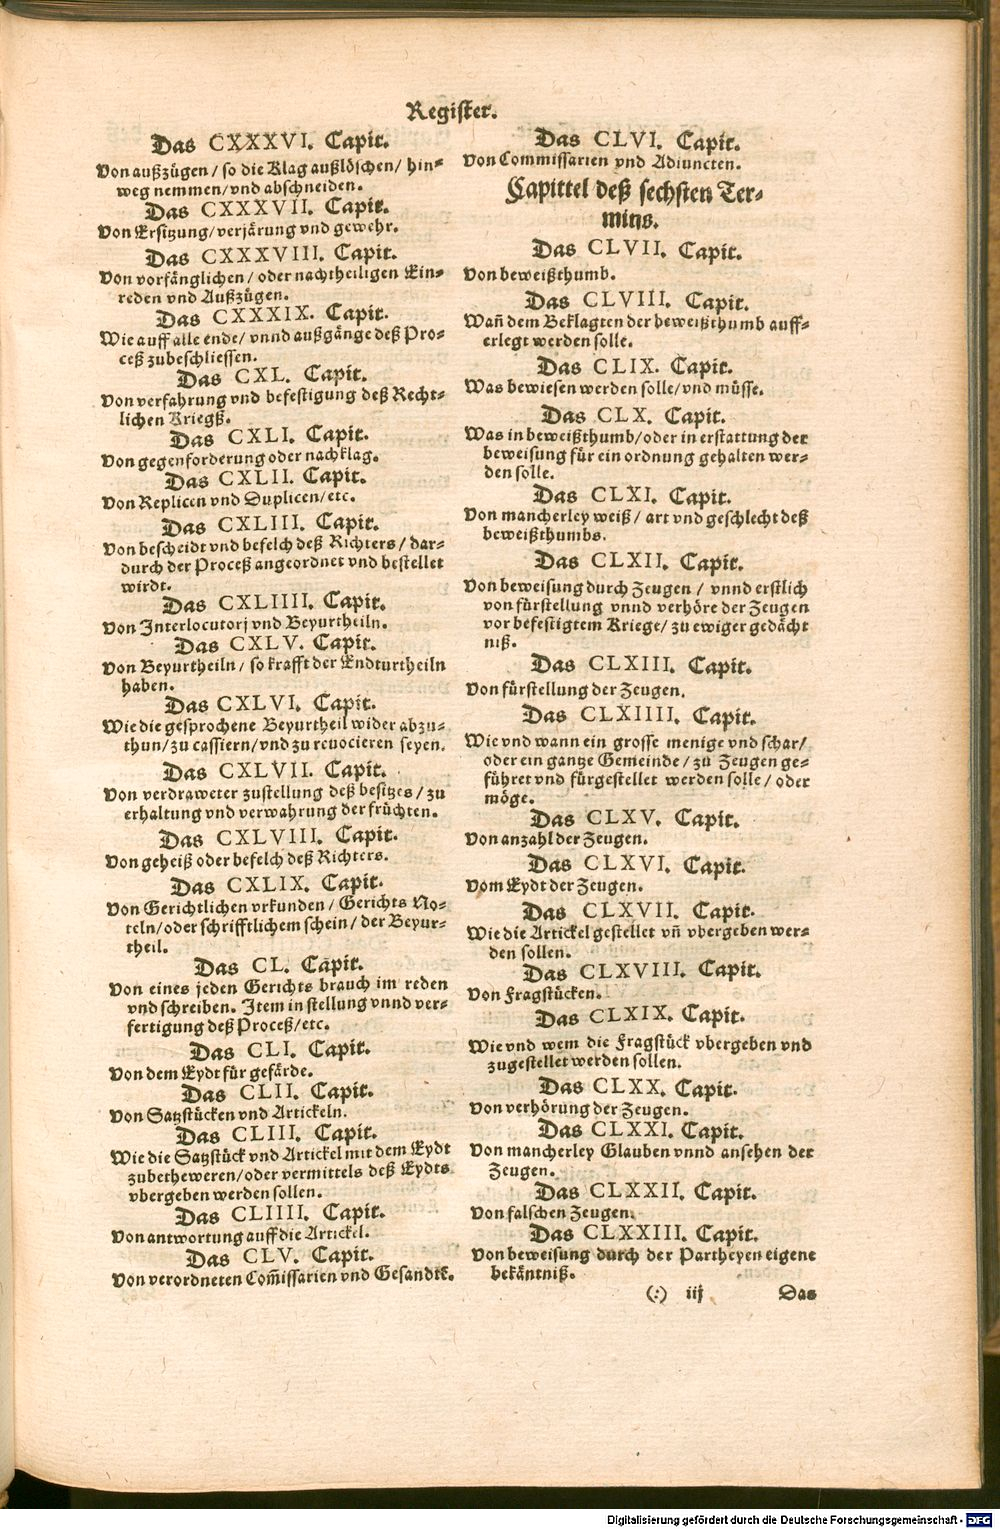 Register.
Das CXXXVI. Capit.
Von außzügen / so die Klag außlöschen / hin=
weg nemmen / vnd abschneiden.
Das CXXXVII. Capit.
Von Ersitzung / verjärung vnd gewehr.
Das CXXXVIII. Capit.
Von vorfänglichen / oder nachtheiligen Ein=
reden vnd Außzügen.
Das CXXXIX. Capit.
Wie auff alle ende / vnnd außgänge deß Pro=
ceß zubeschliessen.
Das CXL. Capit.
Von verfahrung vnd befestigung deß Recht=
lichen Kriegß.
Das CXLI. Capit.
Von gegenforderung oder nachklag.
Das CXLII. Capit.
Von Replicen vnd Duplicen / etc.
Das CXLIII. Capit.
Von bescheidt vnd befelch deß Richters / dar=
durch der Proceß angeordnet vnd bestellet
wirdt.
Das CXLIIII. Capit.
Von Interlocutorj vnd Beyurtheiln.
Das CXLV. Capit.
Von Beyurtheiln / so krafft der Endturtheiln
haben.
Das CXLVI. Capit.
Wie die gesprochene Beyurtheil wider abzu=
thun / zu cassiern / vnd zu reuocieren seyen.
Das CXLVII. Capit.
Von verdraweter zustellung deß besitzes / zu
erhaltung vnd verwahrung der früchten.
Das CXLVIII. Capit.
Von geheiß oder befelch deß Richters.
Das CXLIX. Capit.
Von Gerichtlichen vrkunden / Gerichts No=
teln / oder schrifftlichem schein / der Beyur=
theil.
Das CL. Capit.
Von eines jeden Gerichts brauch im reden
vnd schreiben. Item in stellung vnnd ver=
fertigung deß Proceß / etc.
Das CLI. Capit.
Von dem Eydt für gefärde.
Das CLII. Capit.
Von Satzstücken vnd Artickeln.
Das CLIII. Capit.
Wie die Satzstück vnd Artickel mit dem Eydt
zubetheweren / oder vermittels deß Eydts
vbergeben werden sollen.
Das CLIIII. Capit.
Von antwortung auff die Artickel.
Das CLV. Capit.
Von verordneten Com̄issarien vnd Gesandtē.
Das CLVI. Capit.
Von Commissarien vnd Adiuncten.
Capittel deß sechsten Ter=
mins.
Das CLVII. Capit.
Von beweißthumb.
Das CLVIII. Capit.
Wañ dem Beklagten der beweißthumb auff=
erlegt werden solle.
Das CLIX. Capit.
Was bewiesen werden solle / vnd müsse.
Das CLX. Capit.
Was in beweißthumb / oder in erstattung der
beweisung für ein ordnung gehalten wer=
den solle.
Das CLXI. Capit.
Von mancherley weiß / art vnd geschlecht deß
beweißthumbs.
Das CLXII. Capit.
Von beweisung durch Zeugen / vnnd erstlich
von fürstellung vnnd verhöre der Zeugen
vor befestigtem Kriege / zu ewiger gedächt
niß.
Das CLXIII. Capit.
Von fürstellung der Zeugen.
Das CLXIIII. Capit.
Wie vnd wann ein grosse menige vnd schar /
oder ein gantze Gemeinde / zu Zeugen ge=
führet vnd fürgestellet werden solle / oder
möge.
Das CLXV. Capit.
Von anzahl der Zeugen.
Das CLXVI. Capit.
Vom Eydt der Zeugen.
Das CLXVII. Capit.
Wie die Artickel gestellet vñ vbergeben wer=
den sollen.
Das CLXVIII. Capit.
Von Fragstücken.
Das CLXIX. Capit.
Wie vnd wem die Fragstück vbergeben vnd
zugestellet werden sollen.
Das CLXX. Capit.
Von verhörung der Zeugen.
Das CLXXI. Capit.
Von mancherley Glauben vnnd ansehen der
Zeugen.
Das CLXXII. Capit.
Von falschen Zeugen.
Das CLXXIII. Capit.
Von beweisung durch der Partheyen eigene
bekäntniß.
(:) iij Das
Digitalisierung gefördert durch die Deutsche Forschungsgemeinschaft - DFG